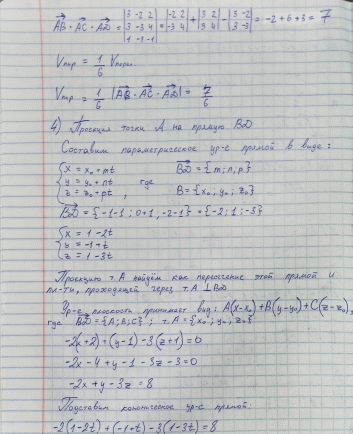 AB · AC · AD = |3 -2 2; 3 -3 4; 1 -1 -1| = |-2 2; -3 4| + |3 2; 3 4| - |3 -2; 3 -3| = -2+6+3 = 7
Vпир = 1/6 Vпарал.
Vпир = 1/6 |AB · AC · AD| = 7/6
4) Проекция точки A на прямую BD
Составим параметрическое ур-е прямой в виде:
x = x₀ + mt
y = y₀ + nt
z = z₀ + pt , где BD = {m; n; p} B = {x₀; y₀; z₀}
BD = {-1-1; 0+1; -2-1} = {-2; 1; -3}
x = 1-2t
y = -1+t
z = 1-3t
Проекцию т.A найдём как пересечение этой прямой и
пл-ти, проходящей через т.A ⊥ BD
Ур-е плоскости принимает вид: A(x-x₀)+B(y-y₀)+C(z-z₀),
где BD = {A; B; C} ; т.A = {x₀; y₀; z₀}
-2(x+2)+(y-1)-3(z+1)=0
-2x-4+y-1-3z-3=0
-2x+y-3z=8
Подставим каноническое ур-е прямой:
-2(1-2t)+(-1+t)-3(1-3t)=8